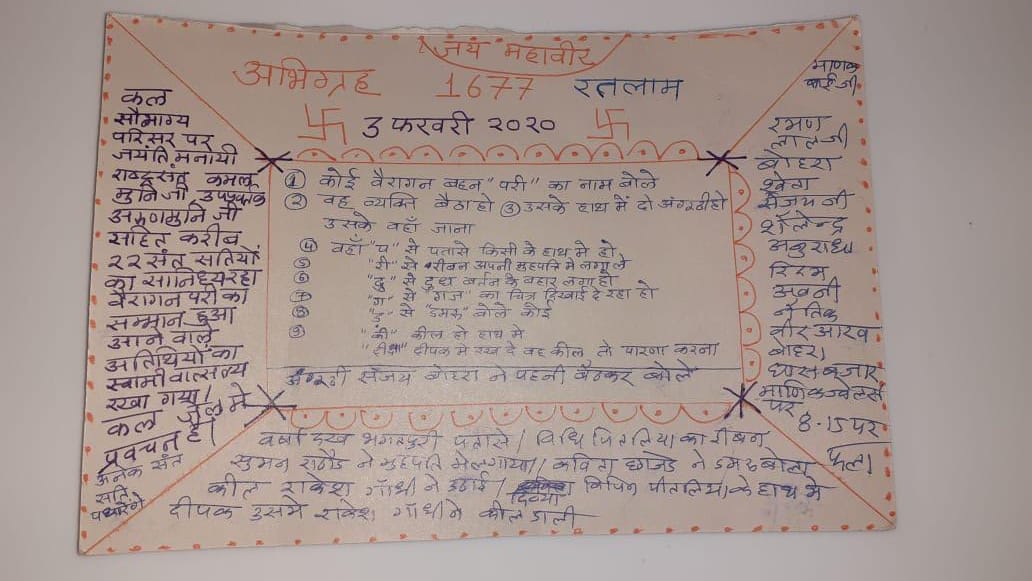 जय महावीर
अभिग्रह 1677 रतलाम
3 फरवरी २०२०
कल
सौभाग्य
परिसर पर
जयंति मनायी
राष्ट्रसंत कमल
मुनि जी उपप्रवर्तक
अरुणमुनि जी
सहित करीब
२२ संत सतियों
का सानिध्य रहा
वैरागन परी का
सम्मान हुआ
आने वाले
अतिथियों का
स्वामीवात्सल्य
रखा गया।
कल जेल मे
प्रवचन है।
अनेक संत
सति
पधारेंगे
① कोई वैरागन बहन "परी" का नाम बोले
② वह व्यक्ति बैठा हो ③ उसके हाथ में दो अंगूठी हो
उसके वहाँ जाना
④ वहाँ "प" से पतासे किसी के हाथ मे हो
⑤ "री" से रीबन अपनी मुहपति मे लगा ले
⑥ "दु" से दुध बर्तन के बहार लगा हो
⑦ "ग" से "गज" का चित्र दिखाई दे रहा हो
⑧ "ड" से "डमरू" बोले कोई
⑨ "की" कील हो हाथ मे
"दीक्षा" दीपक मे रख दे वह कील, तो पारणा करना
अंगूठी संजय बोहरा ने पहनी बैठकर बोले
माणक
बाई जी
रमण
लालजी
बोहरा
श्वेता
संजय जी
शैलेन्द्र
अनुराधा
रिदम
अवनी
नैतिक
वीर आरव
बोहरा
घास बजार
माणिक ज्वेलर्स
पर
8-15 पर
फला
वर्षा दख पतासे / विधि पितलिया का रीबन
सुमन राठौड ने मुहपति मे लगाया / कविता छाजेड ने डमरू बोला
कील राकेश गाँधी ने उठाई / दिव्या विपिन पीतलिया के हाथ मे
दीपक उसमे राकेश गाँधी ने कील डाली